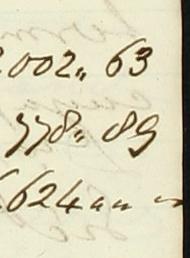 .002„ 63
778„ 89
624„ „ „